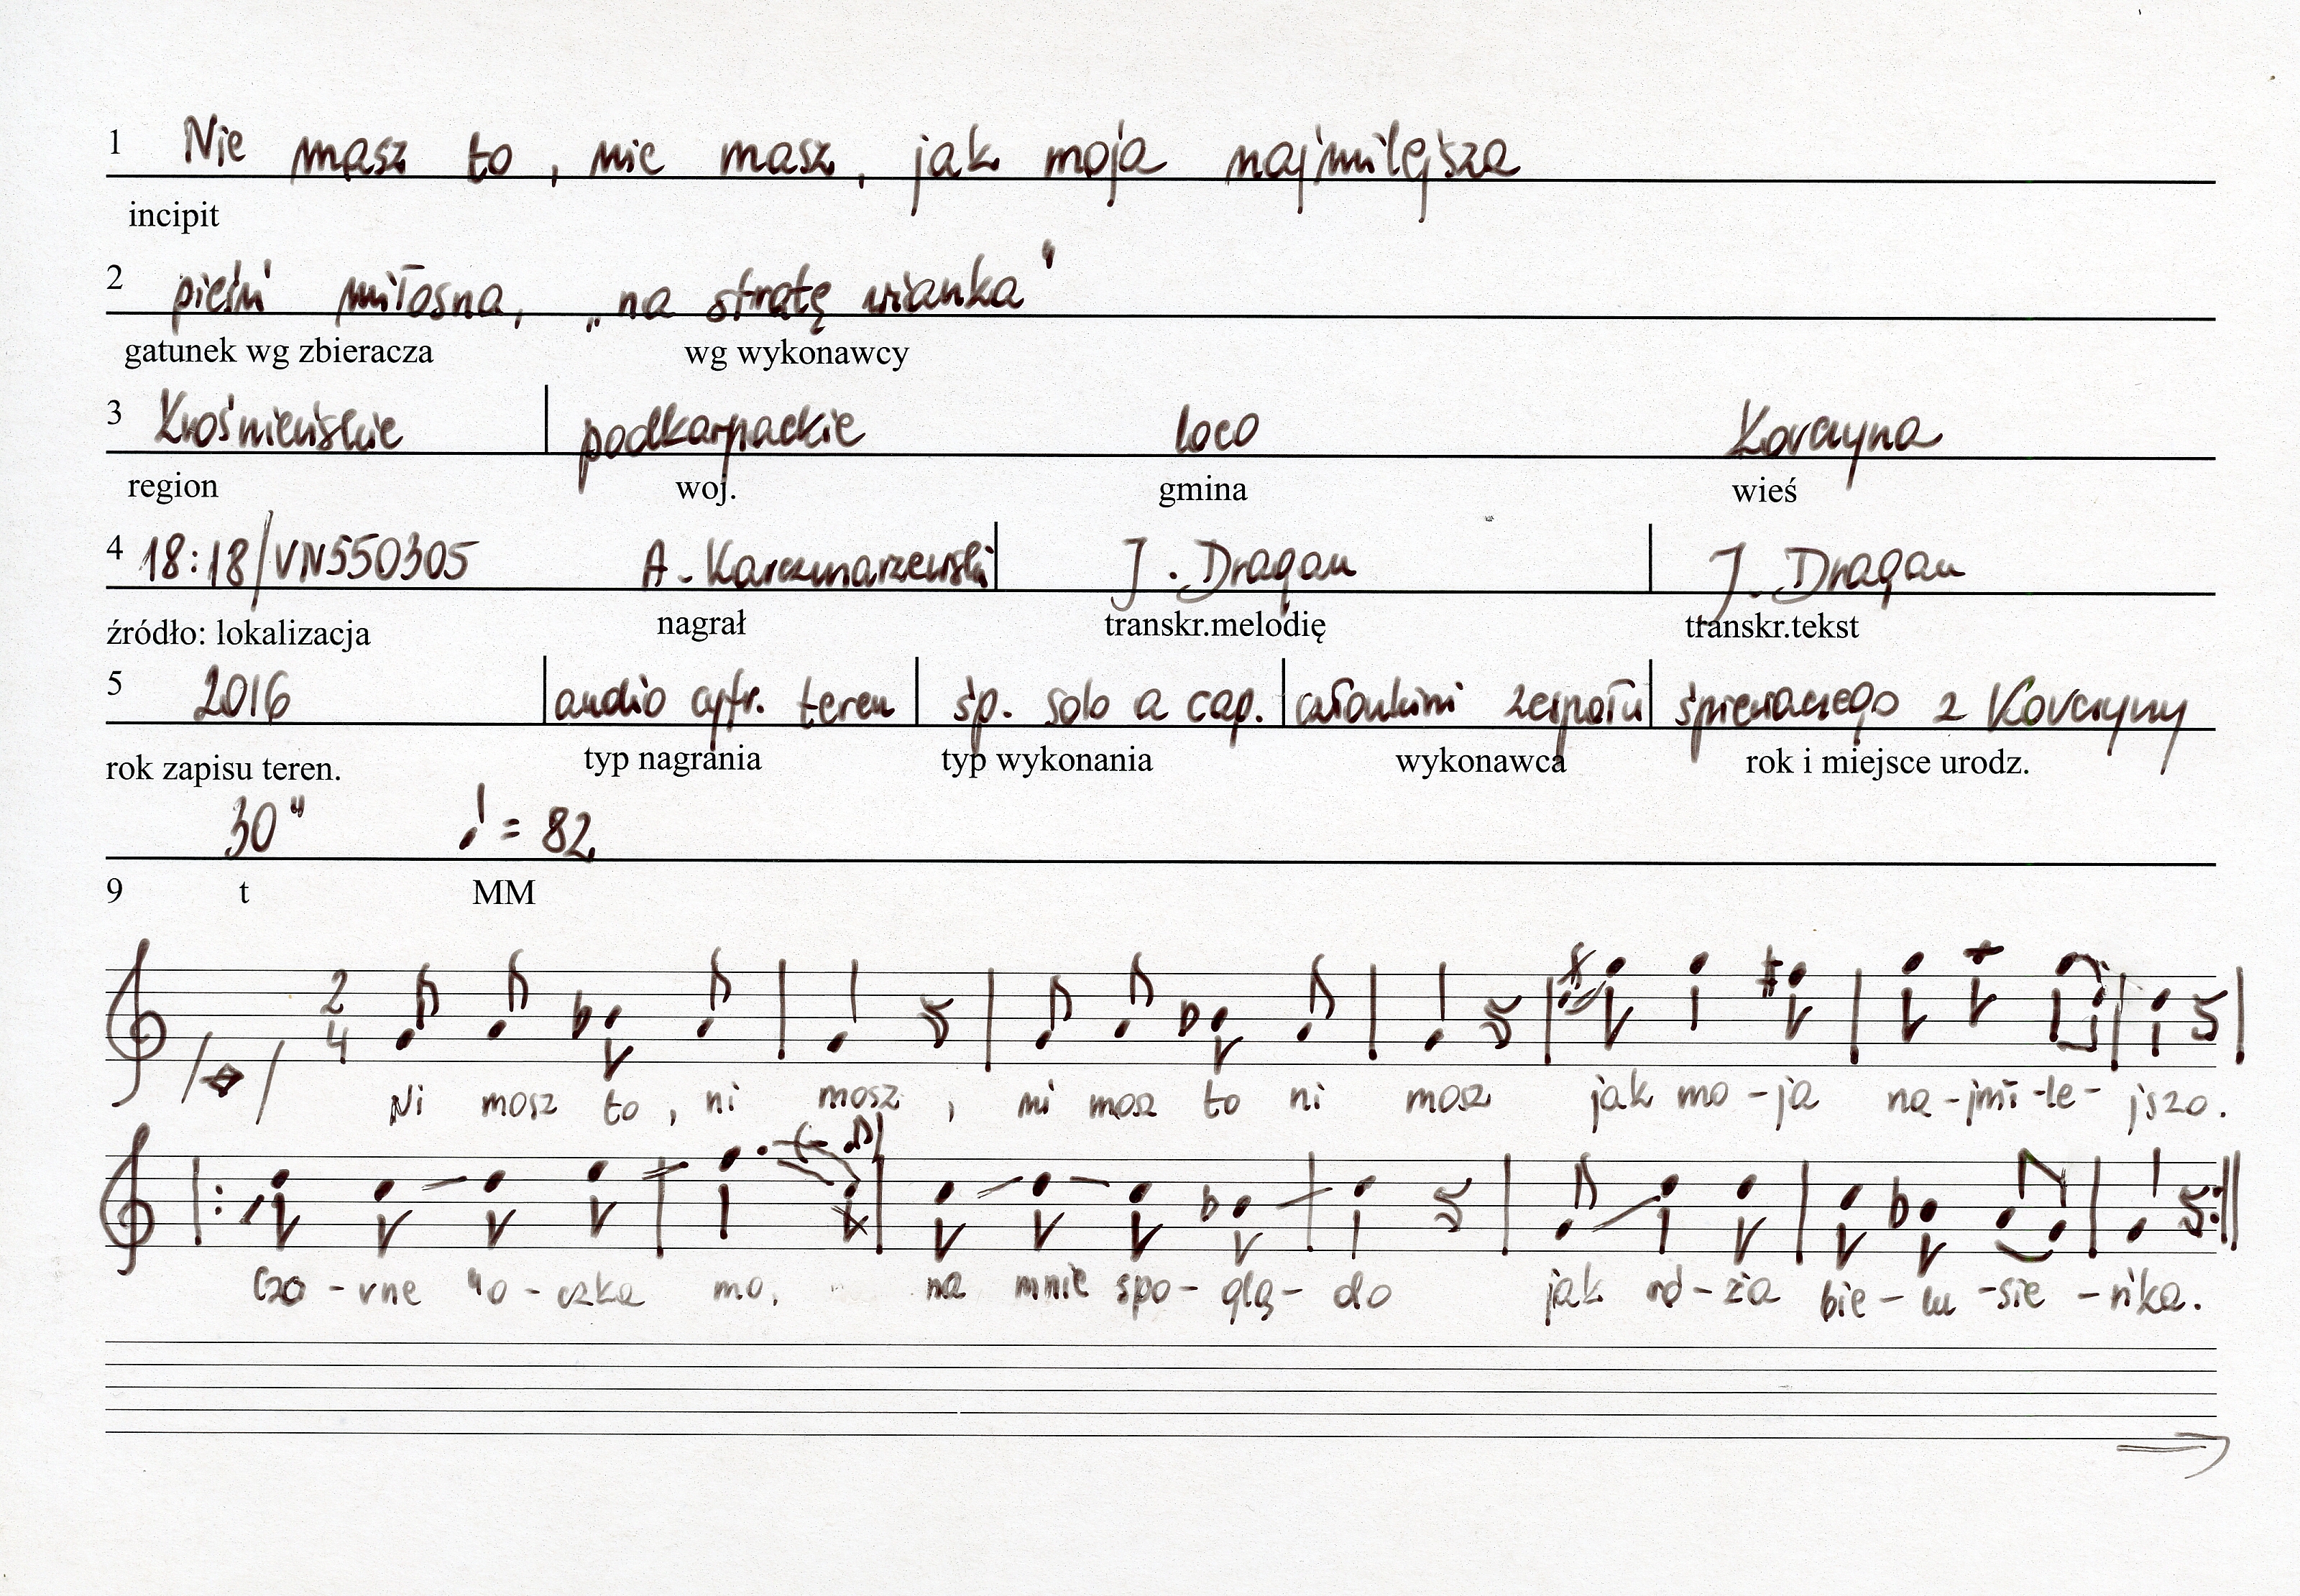 1 Nie masz to, nie masz, jak moja najmilejsza
incipit
2 pieśń miłosna, „na stratę wianka"
gatunek wg zbieracza wg wykonawcy
3 Krośnieńskie podkarpackie loco Korczyna
region woj. gmina wieś
4 18:18/VN550305 A. Karczmarzewski J. Dragan J. Dragan
źródło: lokalizacja nagrał transkr.melodię transkr.tekst
5 2016 audio cyfr. teren śp. solo a cap. członkini zespołu śpiewaczego z Korczyny
rok zapisu teren. typ nagrania typ wykonania wykonawca rok i miejsce urodz.
30" ♩ = 82
9 t MM
2
4
Ni mosz to, ni mosz, ni mosz to ni mosz jak mo-ja na-jmi-le-jszo.
Czo-rne 'ło-czka mo, na mnie spo-glą-do jak rd-zia bie-lu-sie-ńka.